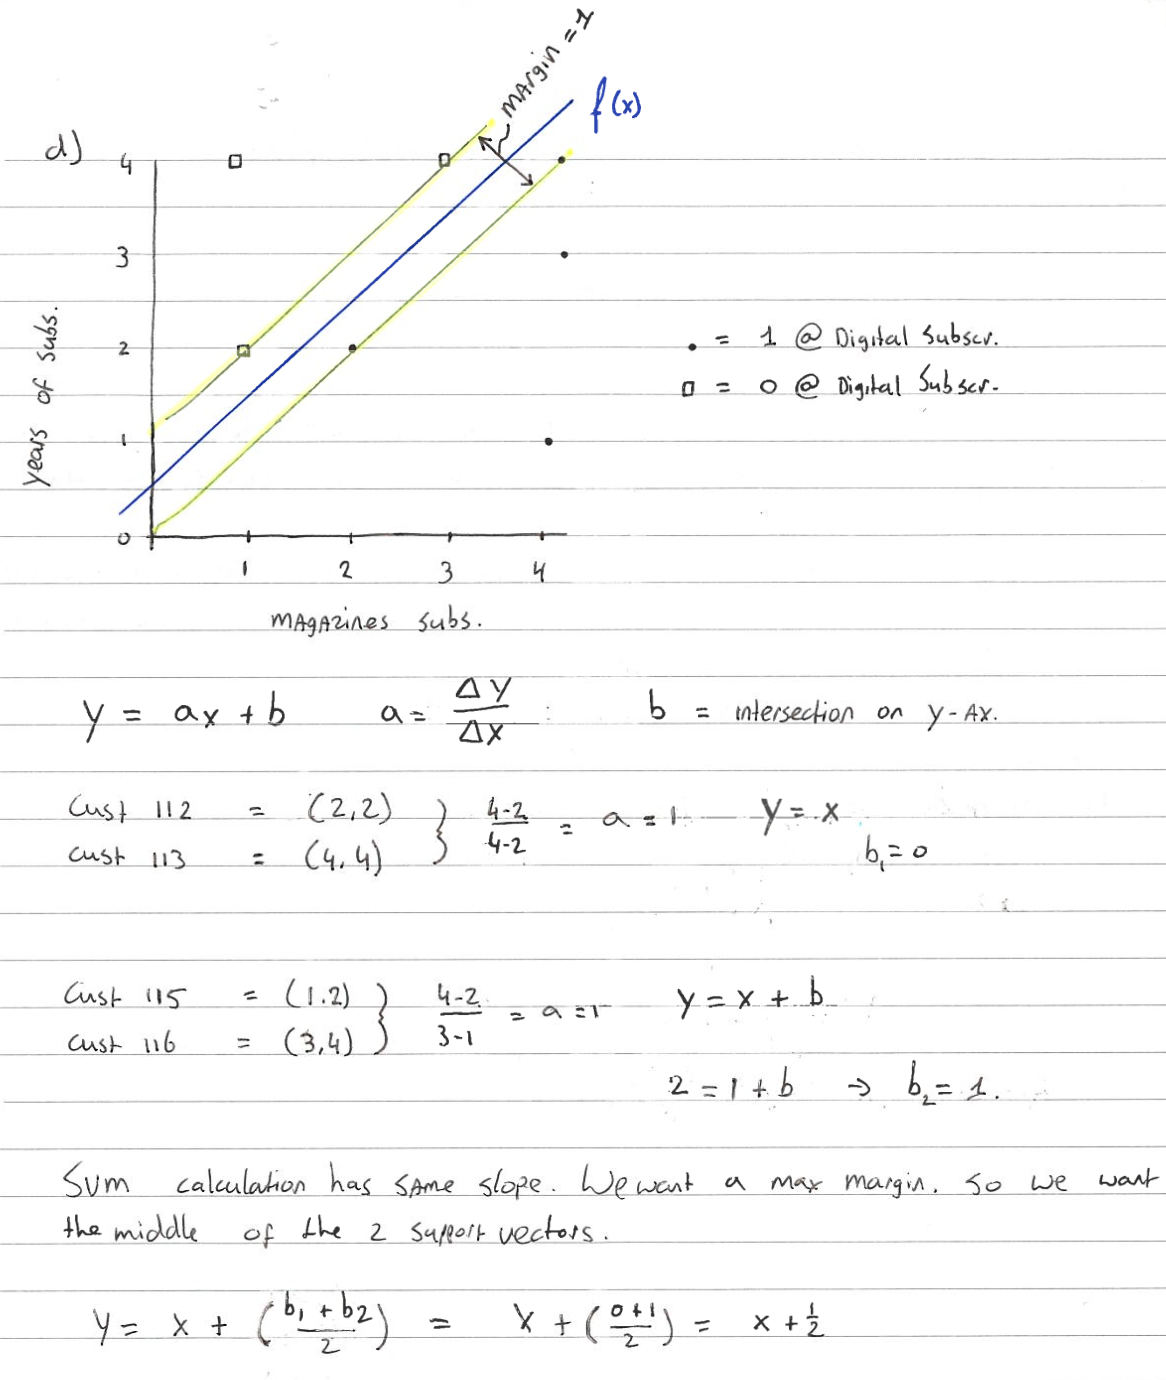 margin = 1
f(x)
d)
4
3
2
1
0
years of subs.
1 2 3 4
magazines subs.
• = 1 @ Digital Subscr.
□ = 0 @ Digital Subscr.
y = ax + b a = Δy/Δx : b = intersection on y-Ax.
Cust 112 = (2,2) } 4-2/4-2 = a = 1 y = x
Cust 113 = (4,4) b₁ = 0
Cust 115 = (1.2) } 4-2/3-1 = a = 1 y = x + b
Cust 116 = (3,4)
2 = 1 + b → b₂ = 1.
SVM calculation has same slope. We want a max margin. So we want
the middle of the 2 support vectors.
y = x + (b₁ + b₂/2) = x + (0+1/2) = x + ½